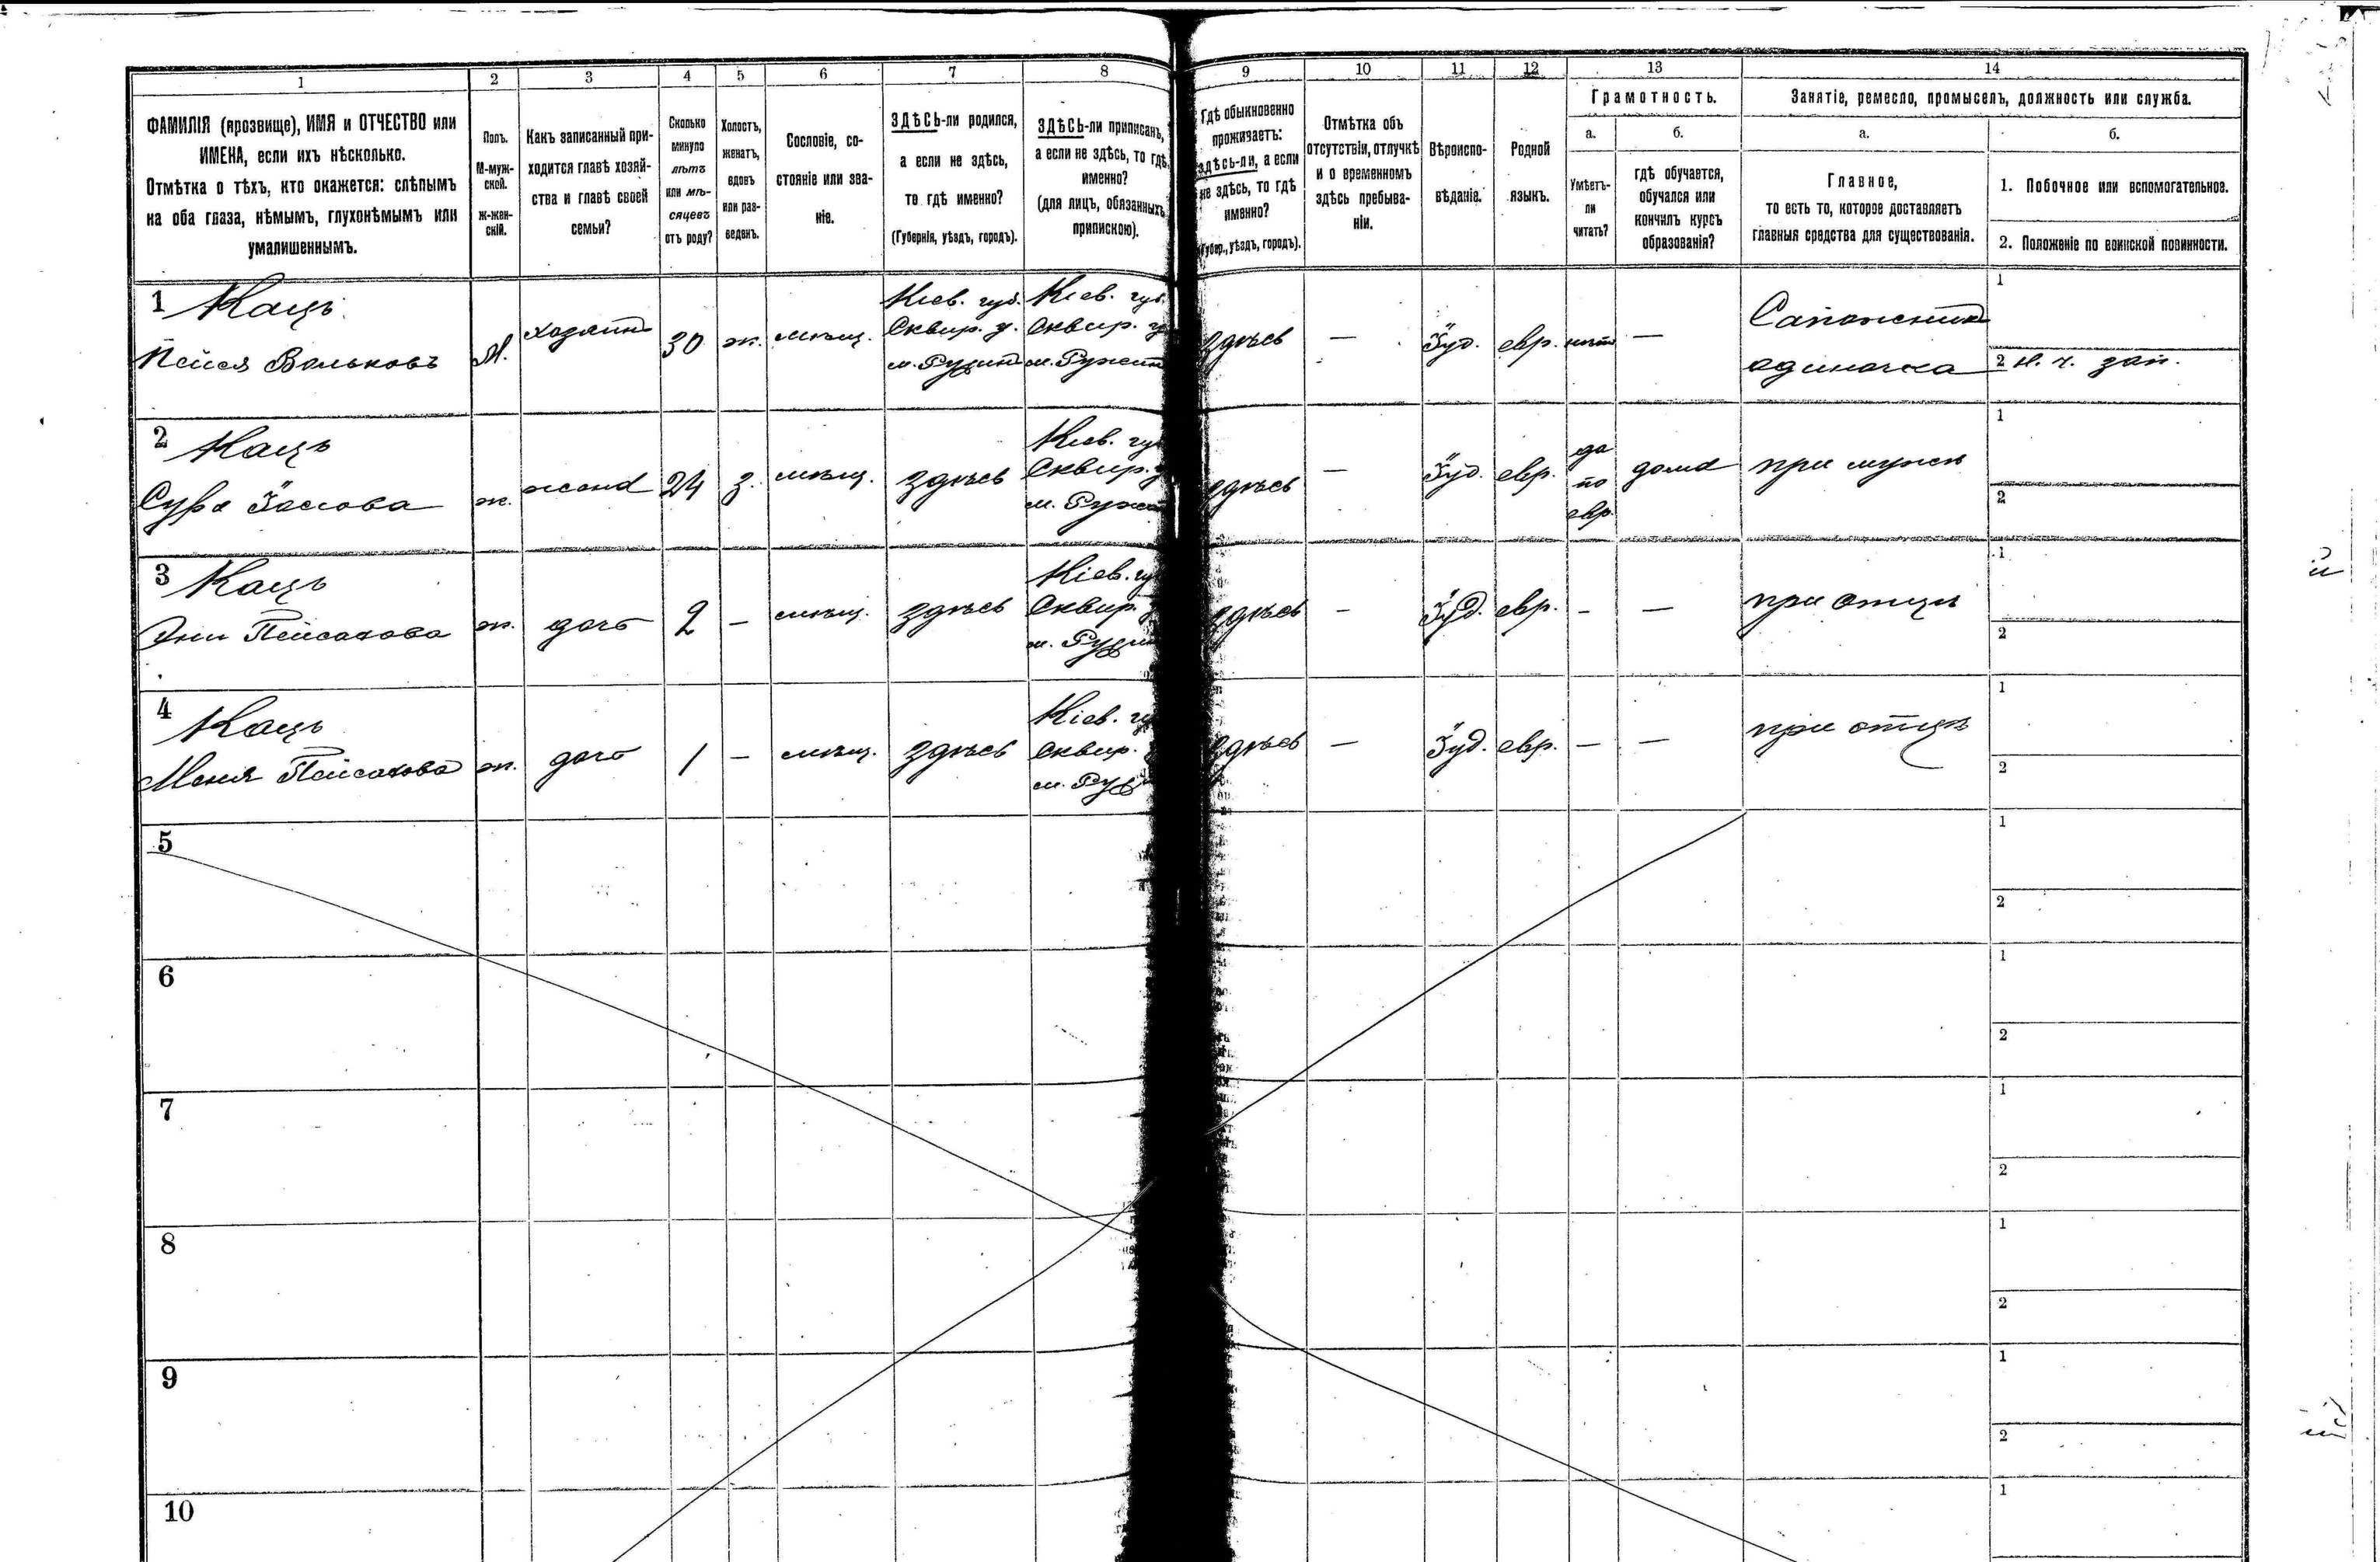 1 2 3 4 5 6 7 8 9 10 11 12 13 14
ФАМИЛІЯ (прозвище), ИМЯ и ОТЧЕСТВО или
ИМЕНА, если ихъ нѣсколько.
Отмѣтка о тѣхъ, кто окажется: слѣпымъ
на оба глаза, нѣмымъ, глухонѣмымъ или
умалишеннымъ.
Полъ.
М-муж-
ской.
ж-жен-
скій.
Какъ записанный при-
ходится главѣ хозяй-
ства и главѣ своей
семьи?
Сколько
минуло
лѣтъ
или мѣ-
сяцевъ
отъ роду?
Холостъ,
женатъ,
вдовъ
или раз-
веденъ.
Сословіе, со-
стояніе или зва-
ніе.
ЗДѢСЬ-ли родился,
а если не здѣсь,
то гдѣ именно?
(Губернія, уѣздъ, городъ).
ЗДѢСЬ-ли приписанъ,
а если не здѣсь, то гдѣ
именно?
(для лицъ, обязанныхъ
припискою).
Гдѣ обыкновенно
проживаетъ:
здѣсь-ли, а если
не здѣсь, то гдѣ
именно?
(Губер., уѣздъ, городъ).
Отмѣтка объ
отсутствіи, отлучкѣ
и о временномъ
здѣсь пребыва-
ніи.
Вѣроиспо-
вѣданіе.
Родной
языкъ.
Грамотность.
а.
Умѣетъ-
ли
читать?
б.
гдѣ обучается,
обучался или
кончилъ курсъ
образованія?
Занятіе, ремесло, промыселъ, должность или служба.
а.
Главное,
то есть то, которое доставляетъ
главныя средства для существованія.
б.
1. Побочное или вспомогательное.
2. Положеніе по воинской повинности.
1 Кацъ
Пейся Вольковъ
М.
хозяинъ
30
ж.
мѣщ.
Кіев. губ.
Сквир. у.
м. Ружинъ
Кіев. губ.
Сквир. у
м. Ружин
здѣсь
—
Іуд.
евр.
нѣтъ
—
Сапожникъ
одиночка
1
2 н. ч. зап.
2 Кацъ
Сура Іосіова
ж.
жена
24
з.
мѣщ.
здѣсь
Кіев. гу
Сквир. у
м. Ружи
здѣсь
—
Іуд.
евр.
да
по
евр.
дома
при мужѣ
1
2
3 Кацъ
Эни Пейсахова
ж.
дочь
2
—
мѣщ.
здѣсь
Кіев. гу
Сквир.
м. Ружи
здѣсь
—
Іуд.
евр.
—
—
при отцѣ
1
2
4 Кацъ
Меня Пейсахова
ж.
дочь
1
—
мѣщ.
здѣсь
Кіев. гу
Сквир.
м. Руж
здѣсь
—
Іуд.
евр.
—
—
при отцѣ
1
2
5
1
2
6
1
2
7
1
2
8
1
2
9
1
2
10
1